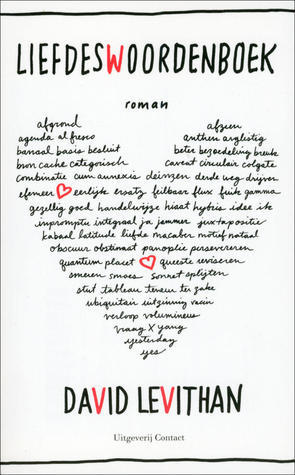 LIEFDESWOORDENBOEK
roman
afgrond afzien
agenda al fresco anthem arglistig
banaal basis besluit beter bezoedeling breuk
bron cache categorisch caveat circulair colgate
combinatie cum annexis deinzen derde weg drijven
efemeer eerlijk ersatz feilbaar flux fuik gamma
gezellig goed handelwijze hiaat hybris idee ik
impromptu integraal ja jammer juxtapositie
kabaal latitude liefde macaber motief nataal
obscuur obstinaat panoplie persevereren
quantum placet queeste reviseren
smeren smoes sonnet splijten
stut tableau teveel ter zake
ubiquitair uitzinnig vacin
verloop volumineus
vraag X yang
yesterday
yes
DAVID LEVITHAN
Uitgeverij Contact